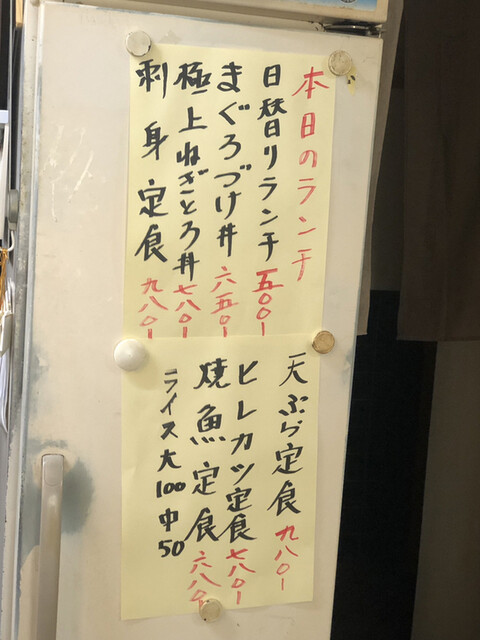 本日のランチ
日替りランチ 五〇〇ー
まぐろづけ丼 六五〇ー
極上ねぎとろ丼 七八〇ー
刺身定食 九八〇ー
天ぷら定食 九八〇ー
ヒレカツ定食 七八〇ー
焼魚定食 六八〇ー
ライス大100中50